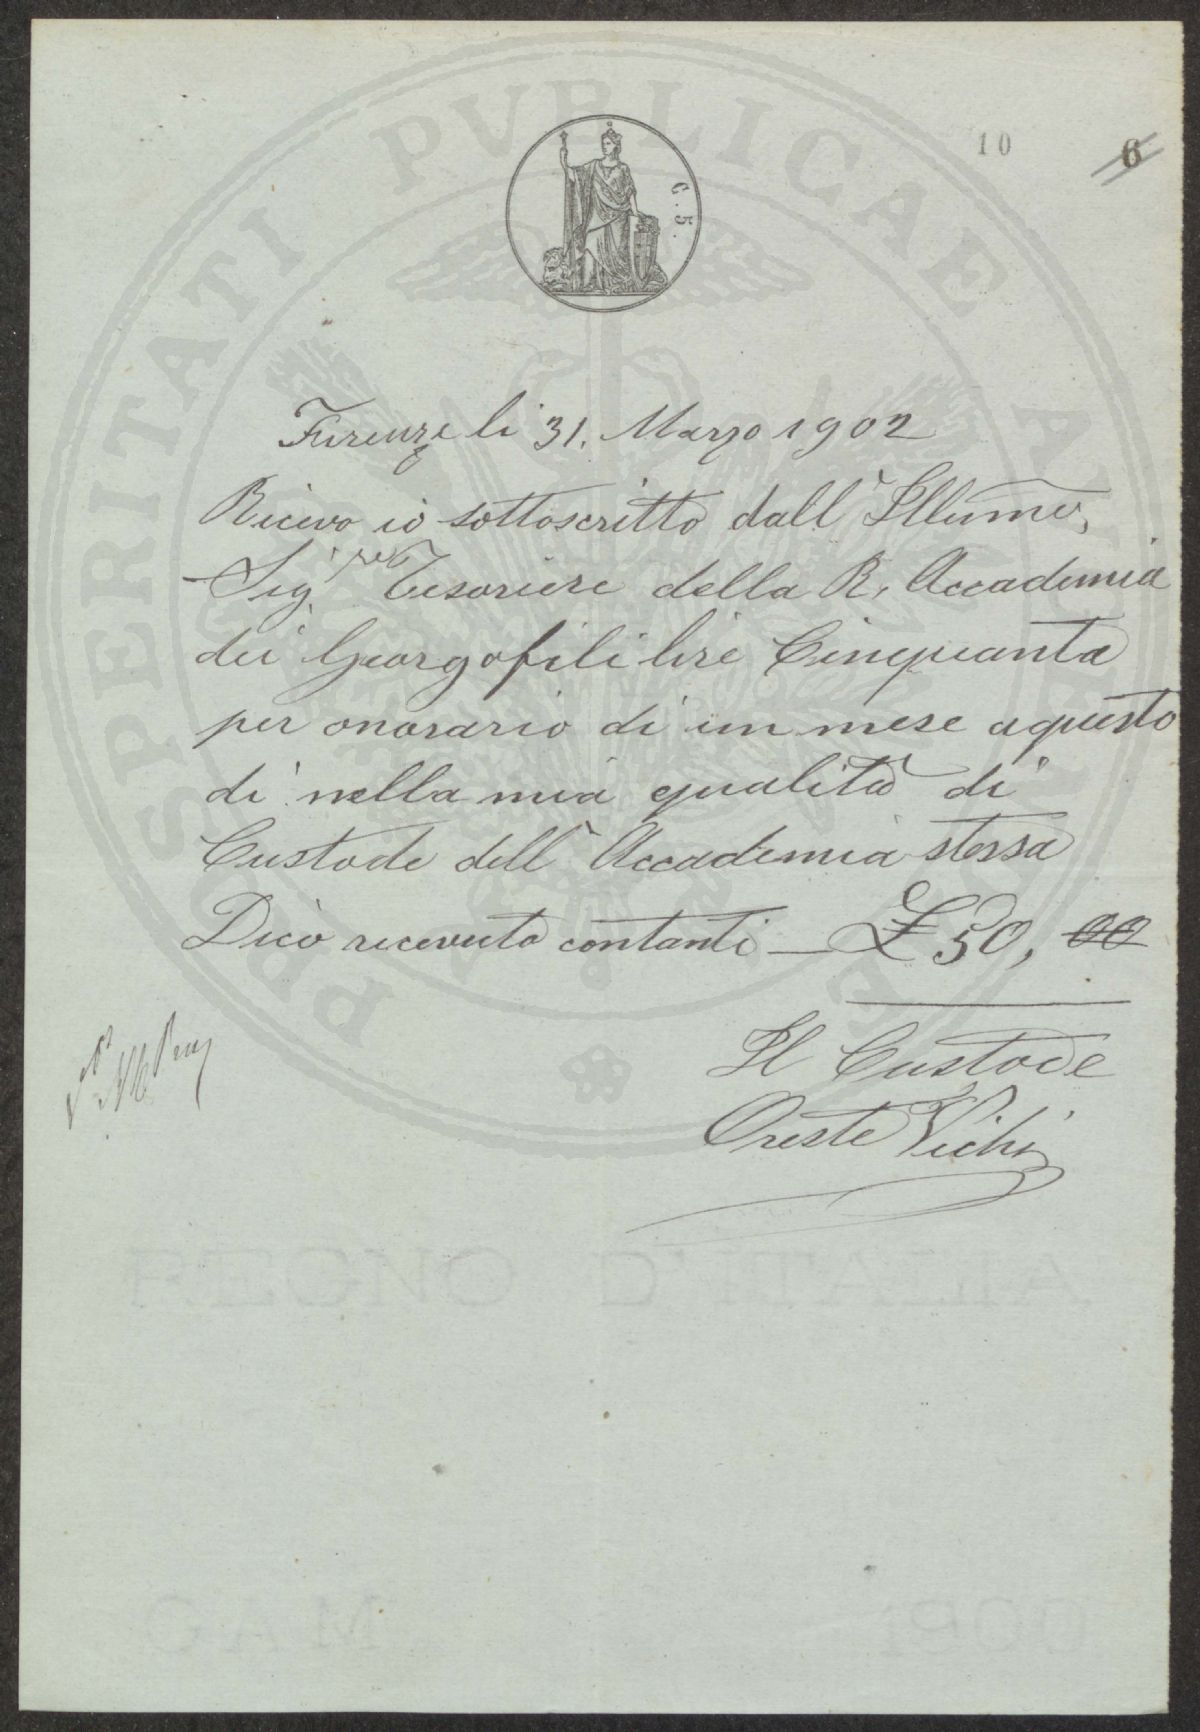 10 6
C. 5.
PROSPERITATI PVBLICAE AVGENDAE
Firenze li 31. Marzo 1902
Ricevo io sottoscritto dall' Illumo,
Sigr Tesoriere della R. Accademia
dei Georgofili lire Cinquanta
per onorario di un mese a questo
dì nella mia qualità di
Custode dell' Accademia stessa
Dico ricevuto contanti — £ 50, 00
Il Custode
Oreste Vichi
REGNO D'ITALIA